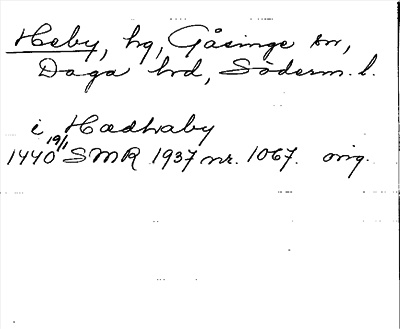 Heby, hg, Gåsinge sn,
Daga hd, Söderm. l.
i Hædhaby
1440 19/1 SMR 1937 nr. 1067. orig.